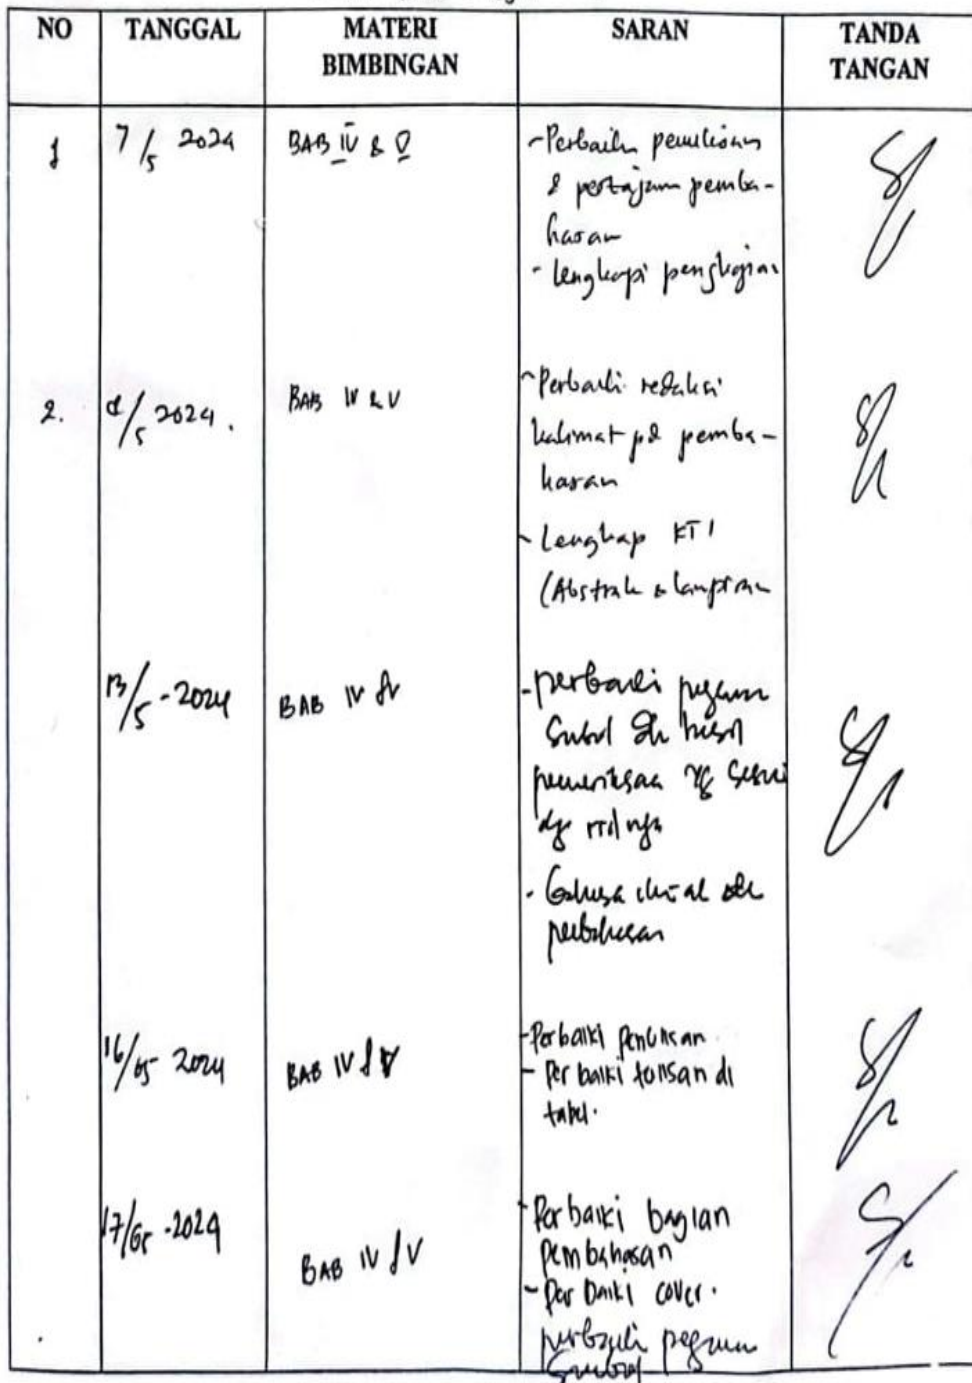 NO TANGGAL MATERI BIMBINGAN SARAN TANDA TANGAN
1 7/5 2024 BAB IV & V -Perbaiki penulisan
& pertajam pemba-
hasan
- lengkapi pengkajian
2. 8/5 2024. BAB IV & V -Perbaiki redaksi
kalimat pd pemba-
hasan
- Lengkap KTI
(Abstrak & lampiran
13/5-2024 BAB IV & V -perbaiki
hasil
pemeriksaan yg sesuai
dg
-
16/05 2024 BAB IV & V -Perbaiki Penulisan
- Perbaiki tulisan di
tabel.
17/05-2024 BAB IV & V -Perbaiki bagian
pembahasan
- Perbaiki cover.
perbaiki